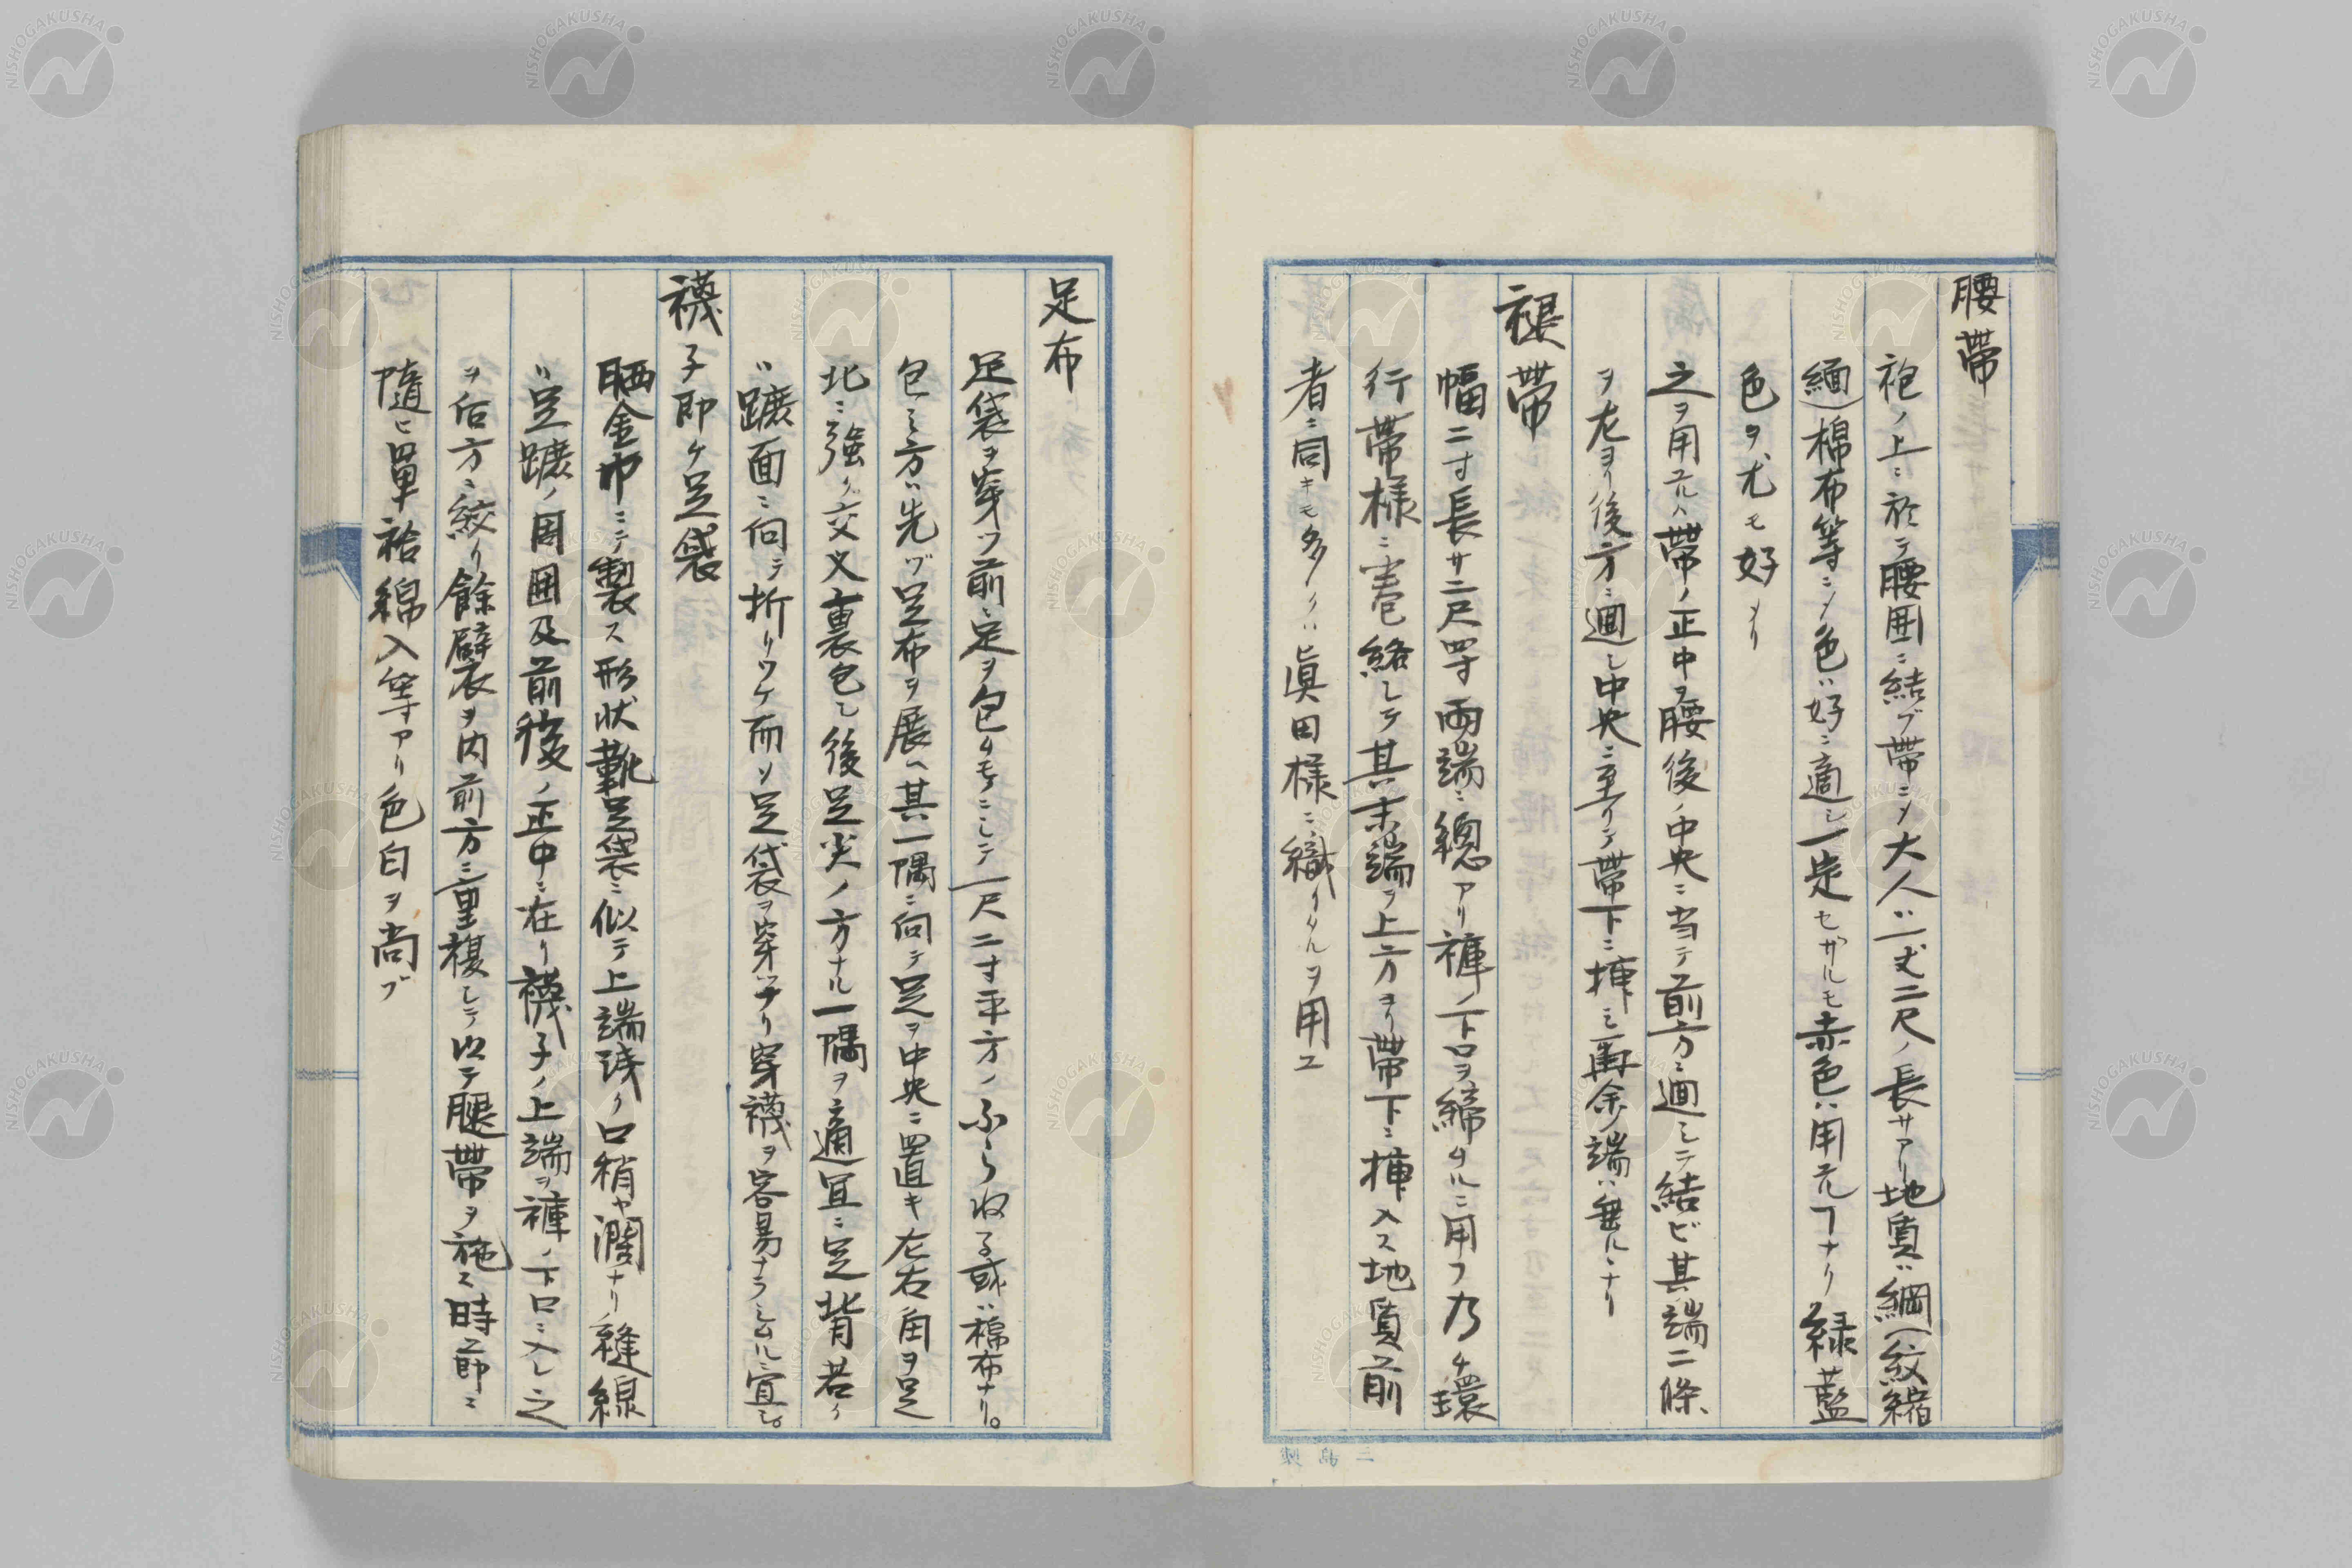 腰帯
袍ノ上ニ於テ腰囲ニ結ブ帯ニ〆大人ハ一丈二尺ノ長サアリ地質ハ綢(紋縮
緬)棉布等ニ〆色ハ好ニ適シ一定セザルモ赤色ハ用元ヿナリ緑藍
色ヲ尤モ好メリ
之ヲ用元ハ帯ノ正中ヲ腰後ノ中央ニ当テ前方ニ廻シテ結ビ其端二條
ヲ左ヨリ後方ニ廻シ中央ニ至リテ帯下ニ挿ミ再余端ハ垂ルヽナリ
褪帯
幅二寸長サ二尺四寸両端ニ總アリ褲ノ下口ヲ締ムルニ用フ乃チ環
行帯様ニ巻絡シテ其末端ヲ上方ヨリ帯下ニ挿入ス地質前
者ニ同キモ多クハ真田様ニ織リタルヲ用ユ
足布
足袋ヲ穿ツ前ニ足ヲ包ムモノニシテ一尺二寸平方ノふらねる或ハ棉布ナリ。
包ミ方ハ先ヅ足布ヲ展ヘ其一隅ニ向テ足ヲ中央ニ置キ左右角ヲ足
北ニ強ク交叉裏包シ後足尖ノ方ナル一隅ヲ適宜ニ足背若ク
ハ蹠面ニ向テ折リワケ而ソ足袋ヲ穿ツナリ穿襪ヲ容易ナラシムルニ宜シ。
襪子即チ足袋
晒金巾ニテ製ス形状靴足袋ニ似テ上端浅ク口稍ヤ濶ナリ縫線
ハ足蹠ノ周囲及前後ノ正中ニ在リ襪子ノ上端ヲ褲ノ下口ニ入レ之
ヲ后方ニ絞リ餘襞ヲ内前方ニ重複シテ以テ腿帯ヲ施ス時節ニ
随ヒ單袷綿入等アリ色白ヲ尚ブ
三嶋製